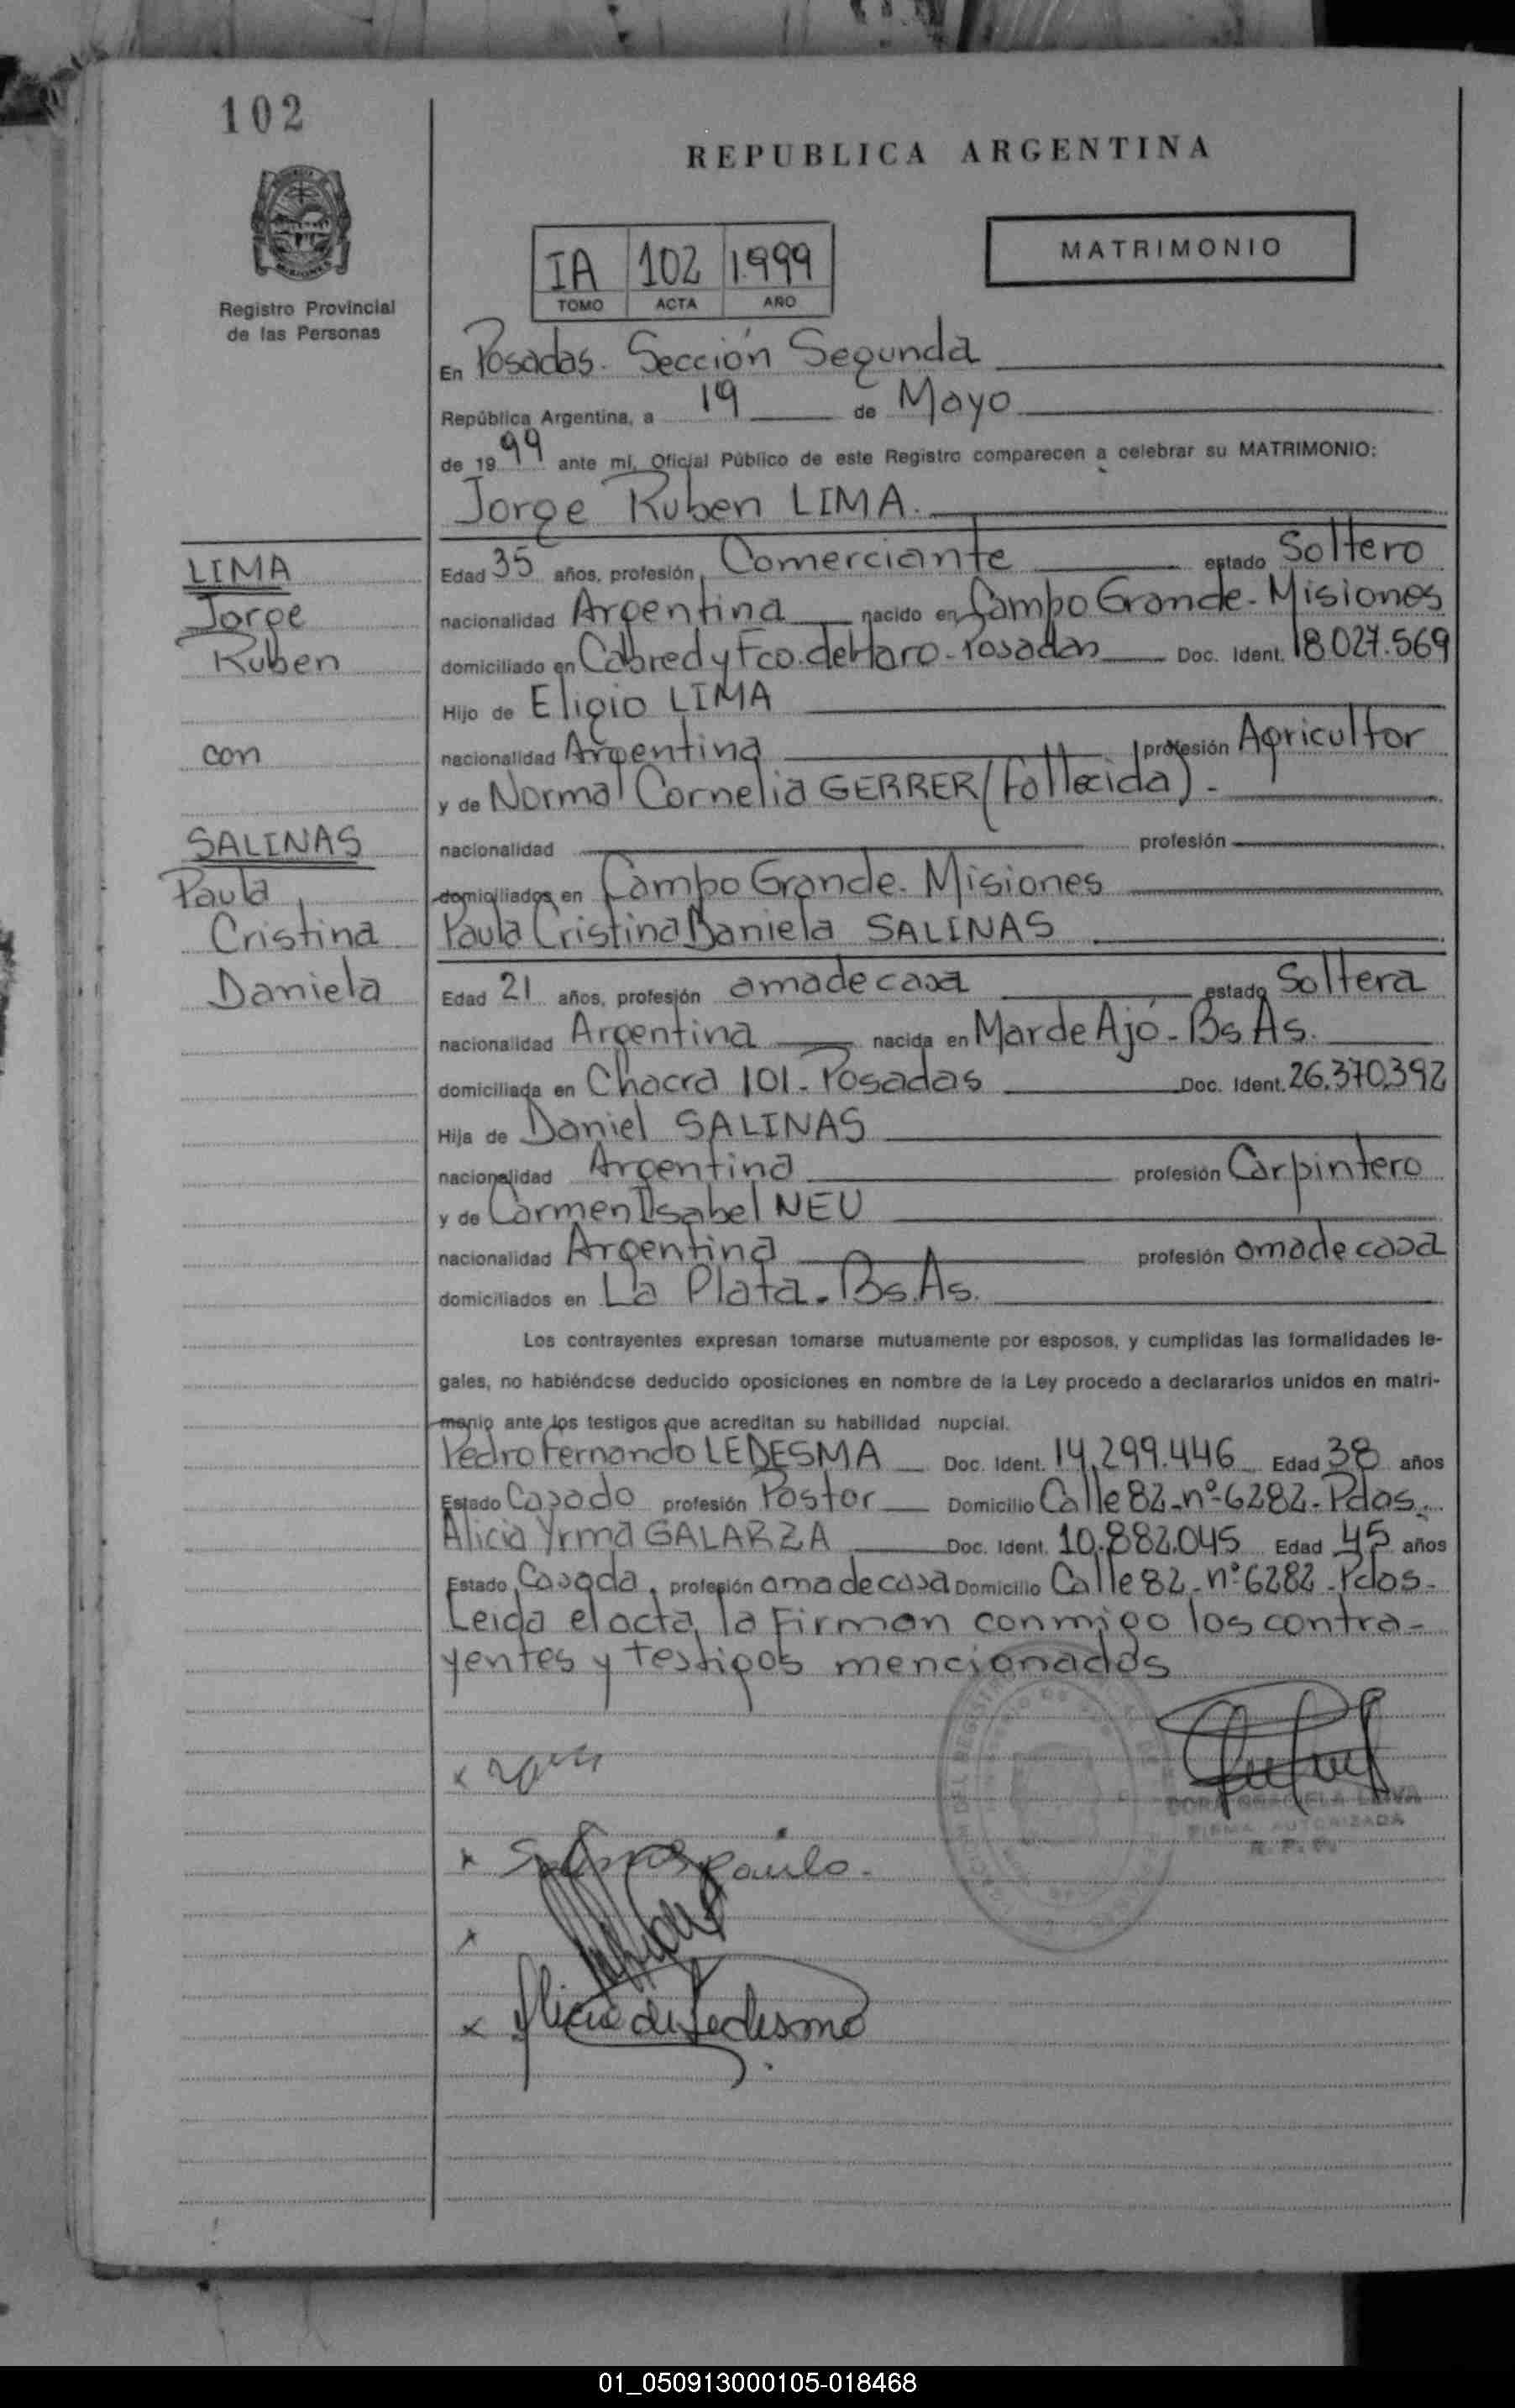 102
REPUBLICA ARGENTINA
MATRIMONIO
IA 102 1.999
TOMO ACTA AÑO
Registro Provincial
de las Personas
En Posadas. Sección Segunda
República Argentina, a 19 de Mayo
de 1999 ante mi, Oficial Público de este Registro comparecen a celebrar su MATRIMONIO:
Jorge Ruben LIMA.
LIMA
Jorge
Ruben
con
SALINAS
Paula
Cristina
Daniela
Edad 35 años, profesión Comerciante estado Soltero
nacionalidad Argentina nacido en Campo Grande - Misiones
domiciliado en Cabred y Fco. de Haro - Posadas Doc. Ident. 18.027.569
Hijo de Eligio LIMA
nacionalidad Argentina profesión Agricultor
y de Norma Cornelia GERRER (Fallecida).-
nacionalidad profesión
domiciliados en Campo Grande. Misiones
Paula Cristina Daniela SALINAS
Edad 21 años, profesión ama de casa estado Soltera
nacionalidad Argentina nacida en Mar de Ajó - Bs As.
domiciliada en Chacra 101 - Posadas Doc. Ident. 26.370.392
Hija de Daniel SALINAS
nacionalidad Argentina profesión Carpintero
y de Carmen Isabel NEU
nacionalidad Argentina profesión ama de casa
domiciliados en La Plata. Bs. As.
Los contrayentes expresan tomarse mutuamente por esposos, y cumplidas las formalidades le-
gales, no habiéndose deducido oposiciones en nombre de la Ley procedo a declararlos unidos en matri-
monio ante los testigos que acreditan su habilidad nupcial.
Pedro Fernando LEDESMA Doc. Ident. 14.299.446 Edad 38 años
Estado Casado profesión Pastor Domicilio Calle 82 - nº 6282 - Pdas.
Alicia Yrma GALARZA Doc. Ident. 10.882.045 Edad 45 años
Estado Casada. profesión ama de casa Domicilio Calle 82 - nº 6282 - Pdas -
Leida el acta, la Firman conmigo los contra-
yentes y testigos mencionados
DORA GRACIELA LEIVA
FIRMA AUTORIZADA
R. P. P.
x
x Salinas Paula.
x
x Alicia de Ledesma
01_050913000105-018468